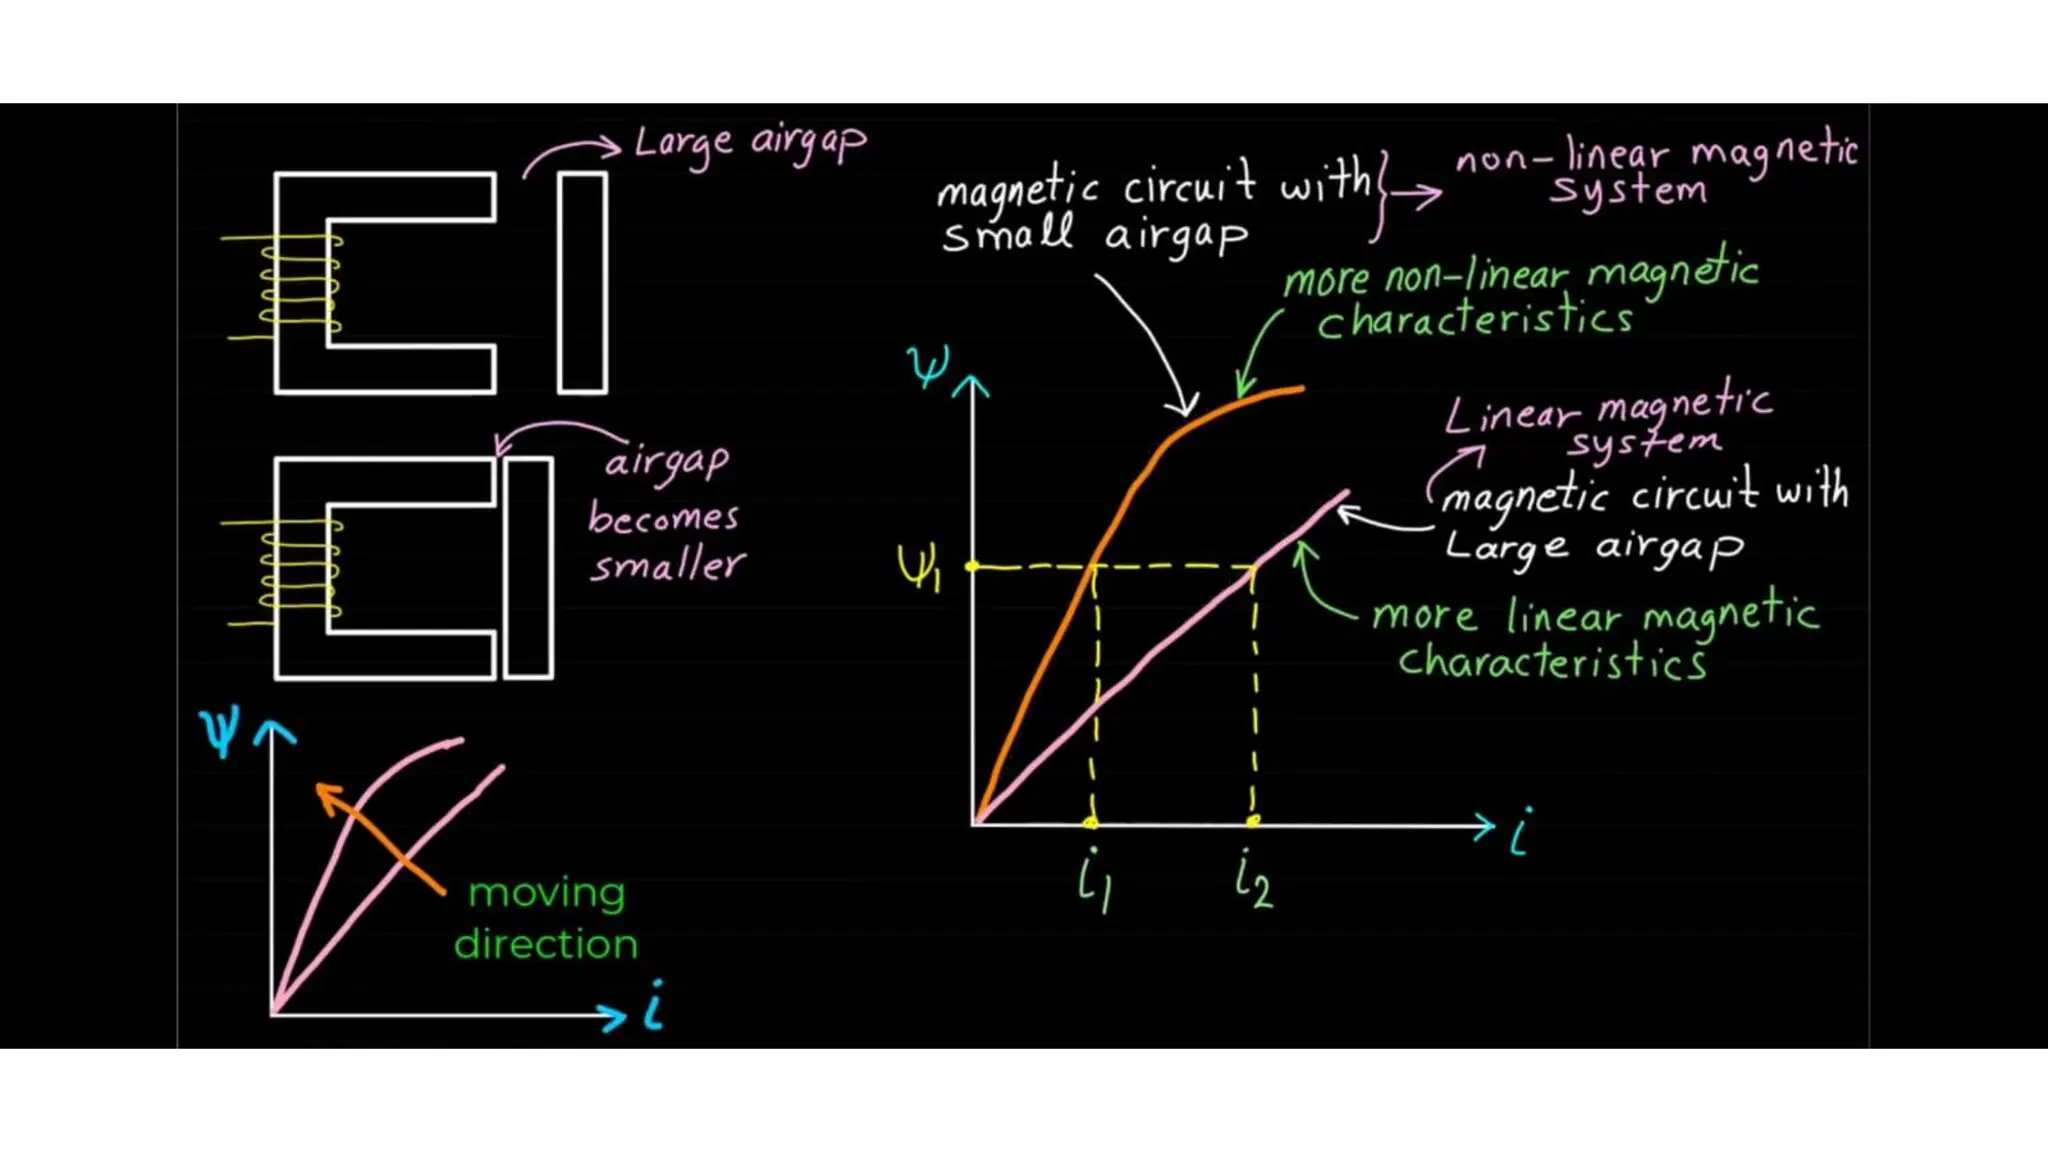 Large airgap
airgap
becomes
smaller
ψ
i
moving
direction
magnetic circuit with
small airgap
non-linear magnetic
system
more non-linear magnetic
characteristics
ψ
Linear magnetic
system
magnetic circuit with
Large airgap
ψ₁
more linear magnetic
characteristics
i
i₁
i₂